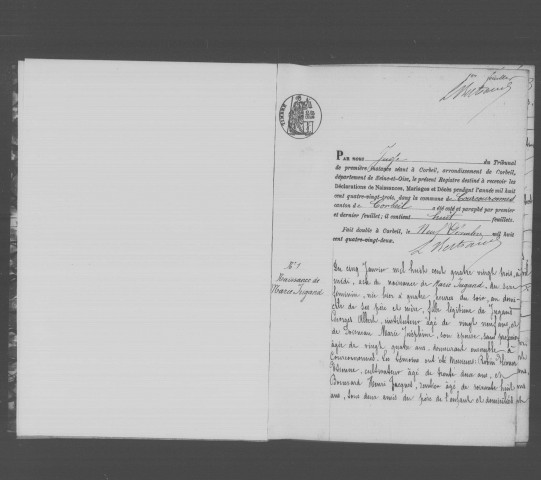 1er feuillet
TIMBRE
PAR NOUS Juge du Tribunal
de première instance séant à Corbeil, arrondissement de Corbeil,
département de Seine-et-Oise, le présent Registre destiné à recevoir les
Déclarations de Naissances, Mariages et Décès pendant l'année mil huit
cent quatre-vingt-trois, dans la commune de Courcouronnes
canton de Corbeil a été coté et paraphé par premier
et dernier feuillet; il contient huit feuillets.
Fait double à Corbeil, le Neuf Décembre mil huit
cent quatre-vingt-deux.
N° 1
Naissance de
Marie Jugand
Du cinq Janvier mil huit cent quatre vingt trois, à
midi, acte de naissance de Marie Jugand, du sexe
féminin, née hier à quatre heures du soir, au domi-
cile de ses père et mère, fille légitime de Jugand
Georges Albert, instituteur âgé de vingt neuf ans, et
de Marie Joséphine, son épouse, sans profession
âgée de vingt quatre ans, demeurant ensemble à
Courcouronnes. Les témoins ont été Messieurs
Etienne, cultivateur âgé de trente deux ans, et
Henri Jacques, rentier âgé de soixante huit
ans, tous deux amis du père de l'enfant et domiciliés